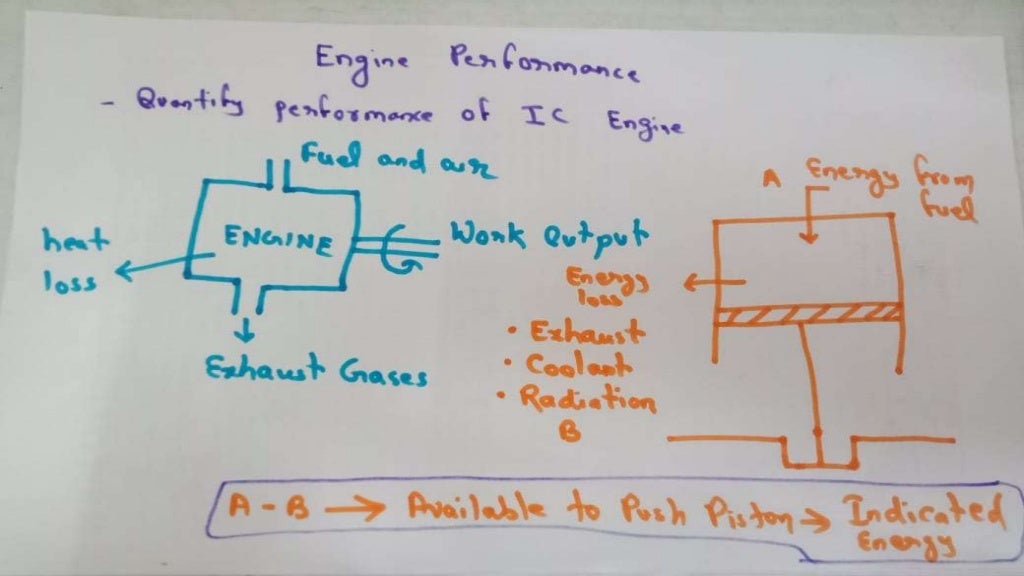 Engine Performance
- Quantify performance of IC Engine
Fuel and air
ENGINE
heat
loss
Work Output
Exhaust Gases
A Energy from
fuel
Energy
loss
• Exhaust
• Coolant
• Radiation
B
A - B → Available to Push Piston → Indicated
Energy